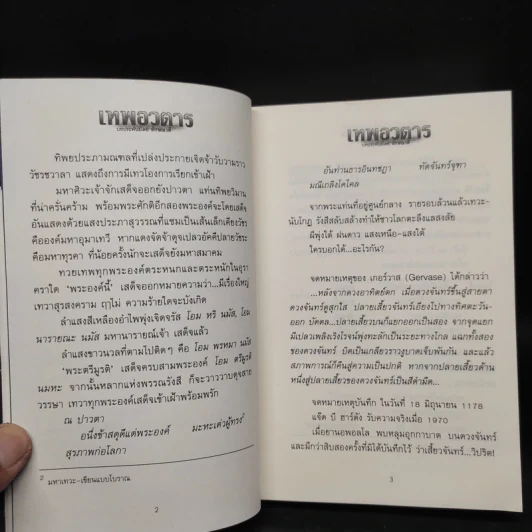 เทพอวตาร
ทิพยประภามณฑลที่เปล่งประกายเจิดจ้าวับวามราว
วัชรชวาลา แสดงถึงการมีเทวโองการเรียกเข้าเฝ้า
มหาศิวะเจ้าจักเสด็จออกยังปาวตา แท่นทิพยวิมาน
ที่น่าครั่นคร้าม พร้อมพระศักติอีกสองพระองค์จะโดยเสด็จ
อันแสดงด้วยแสงประภาสุวรรณที่แซมเป็นเส้นเล็กเคียงวัชร
คือองค์มหาอุมาเทวี หากแดงจัดจ้าดุจเปลวอัคคีปลายวัชระ
คือมหาทุรคา ที่น้อยครั้งนักจะเสด็จยังมหาสมาคม
ทวยเทพทุกพระองค์ตระหนกและตระหนักในอุรา
คราใด 'พระองค์นี้' เสด็จออกหมายความว่า...มีเรื่องใหญ่
เทวาสุรสงคราม ฤๅไม่ ความร้ายใดจะบังเกิด
ลำแสงสีเหลืองอำไพพุ่งเจิดจรัส โอม หริ นมัส, โอม
นารายณะ นมัส มหานารายณ์เจ้า เสด็จแล้ว
ลำแสงขาวนวลที่ตามไปติดๆ คือ โอม พรหมา นมัส
'พระตรีมูรติ' เสด็จครบสามพระองค์ โอม ตรีมูรติ
นมหะ จากนั้นหลากแห่งพรรณรังสี ก็จะวาววาบดุจสาย
วรรษา เทวาทุกพระองค์เสด็จเข้าเฝ้าพร้อมพรัก
ณ ปาวตา
อนึ่งข้าสดุดีแด่พระองค์ มะหะเด่วผู้ทรง²
สุรภาพก่อโลกา
² มหาเทวะ-เขียนแบบโบราณ
2
เทพอวตาร
อันท่านธารอินทชฎา ทัดจันทร์จุฑา
มณีเกลิงโคไคล
จากพระแท่นที่อยู่ศูนย์กลาง รายรอบล้วนแล้วเทวะ-
นับโกฏ รังสีสลับสล้างทำให้ชาวโลกตะลึงแลสงสัย
ผีพุ่งใต้ ฝนดาว แสงเหนือ-แสงใต้
ใครบอกได้...อะไรกัน?
จดหมายเหตุของ เกอร์วาส (Gervase) ได้กล่าวว่า
...หลังจากดวงอาทิตย์ตก เมื่อดวงจันทร์ขึ้นสู่สายตา
ดวงจันทร์ดูสุกใส ปลายเสี้ยวจันทร์เอียงไปทางทิศตะวัน-
ออก บัดดล...ปลายเสี้ยวบนก็แยกออกเป็นสอง จากจุดแยก
มีเปลวเพลิงเริงโรจน์พุ่งทะลักเป็นระยะทางไกล แฉกทั้งสอง
ของดวงจันทร์ บิดเป็นเกลียวราวงูบาดเจ็บพันกัน และแล้ว
สภาพการณ์ก็คืนสู่ความเป็นปกติ หากจากปลายเสี้ยวด้าน
หนึ่งสู่ปลายเสี้ยวของดวงจันทร์เป็นสีดำมืด...
จดหมายเหตุบันทึก ในวันที่ 18 มิถุนายน 1178
แจ๊ค บี ฮาร์ตัง รับความจริงเมื่อ ปี 1970
เมื่อยานอพอลโล พบหลุมอุกกาบาต บนดวงจันทร์
และมีกว่าสิบสองครั้งที่มีได้บันทึกไว้ ว่าเสี้ยวจันทร์...วิปริต!
3